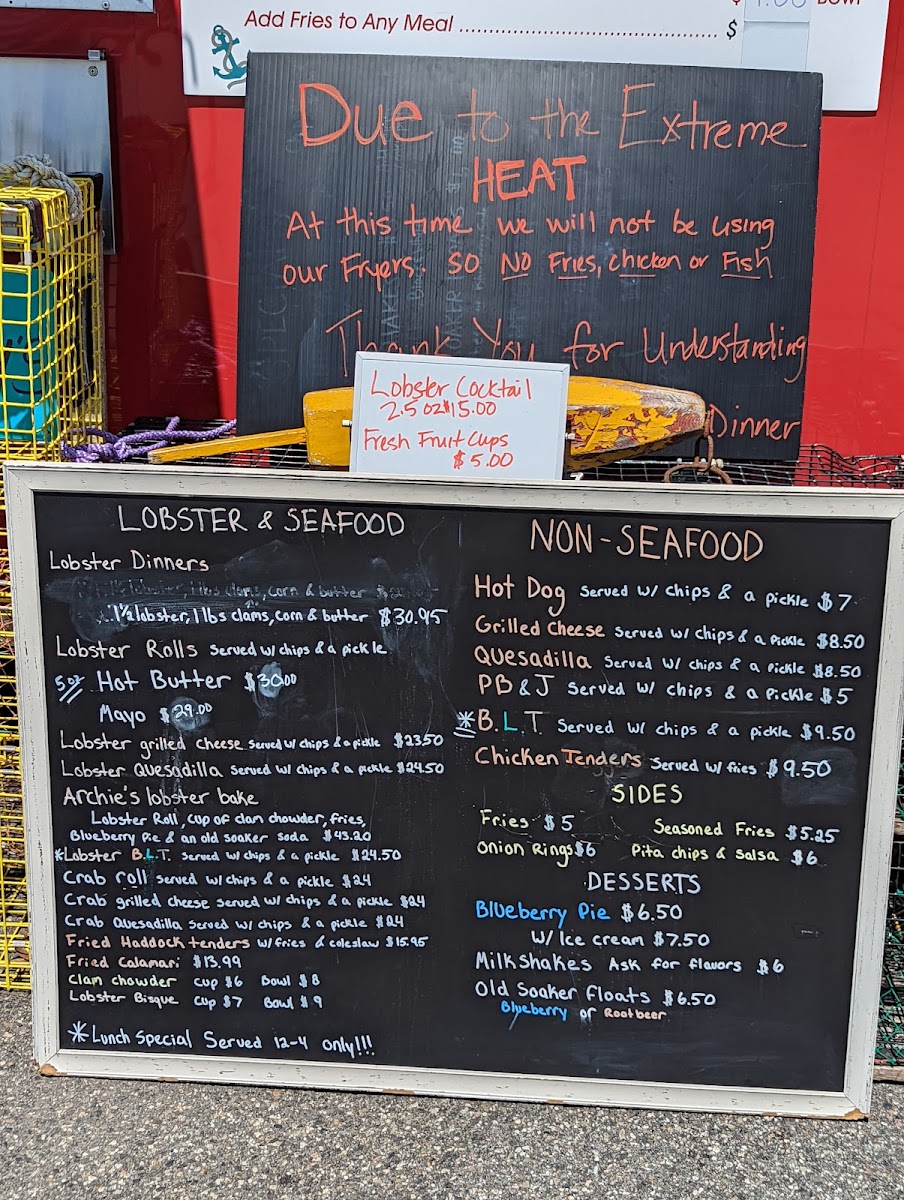 Bowl
Add Fries to Any Meal ........................................ $
Due to the Extreme
HEAT
At this time we will not be using
our Fryers. SO NO Fries, chicken or Fish
Thank You for Understanding
Dinner
Lobster Cocktail
2.5 oz $15.00
Fresh Fruit Cups
$5.00
LOBSTER & SEAFOOD
Lobster Dinners
1 lbs clams, corn & butter
1½ lobster, 1 lbs clams, corn & butter $30.95
Lobster Rolls Served w/ chips & a pickle
5 oz Hot Butter $30.00
Mayo $29.00
Lobster grilled cheese Served w/ chips & a pickle $23.50
Lobster Quesadilla Served w/ chips & a pickle $24.50
Archie's lobster bake
Lobster Roll, cup of clam chowder, fries,
Blueberry Pie & an old soaker soda $43.20
*Lobster B.L.T. Served w/ chips & a pickle $24.50
Crab roll Served w/ chips & a pickle $24
Crab grilled cheese Served w/ chips & a pickle $24
Crab Quesadilla Served w/ chips & a pickle $24
Fried Haddock tenders w/ fries & coleslaw $15.95
Fried Calamari $13.99
Clam chowder cup $6 Bowl $8
Lobster Bisque cup $7 Bowl $9
*Lunch Special Served 12-4 only!!!
NON-SEAFOOD
Hot Dog Served w/ chips & a pickle $7
Grilled Cheese Served w/ chips & a pickle $8.50
Quesadilla Served w/ chips & a pickle $8.50
PB & J Served w/ chips & a pickle $5
*B.L.T. Served w/ chips & a pickle $9.50
Chicken Tenders Served w/ fries $9.50
SIDES
Fries $5 Seasoned Fries $5.25
Onion Rings $6 Pita chips & salsa $6
DESSERTS
Blueberry Pie $6.50
w/ Ice cream $7.50
Milkshakes Ask for flavors $6
Old Soaker Floats $6.50
Blueberry or Rootbeer